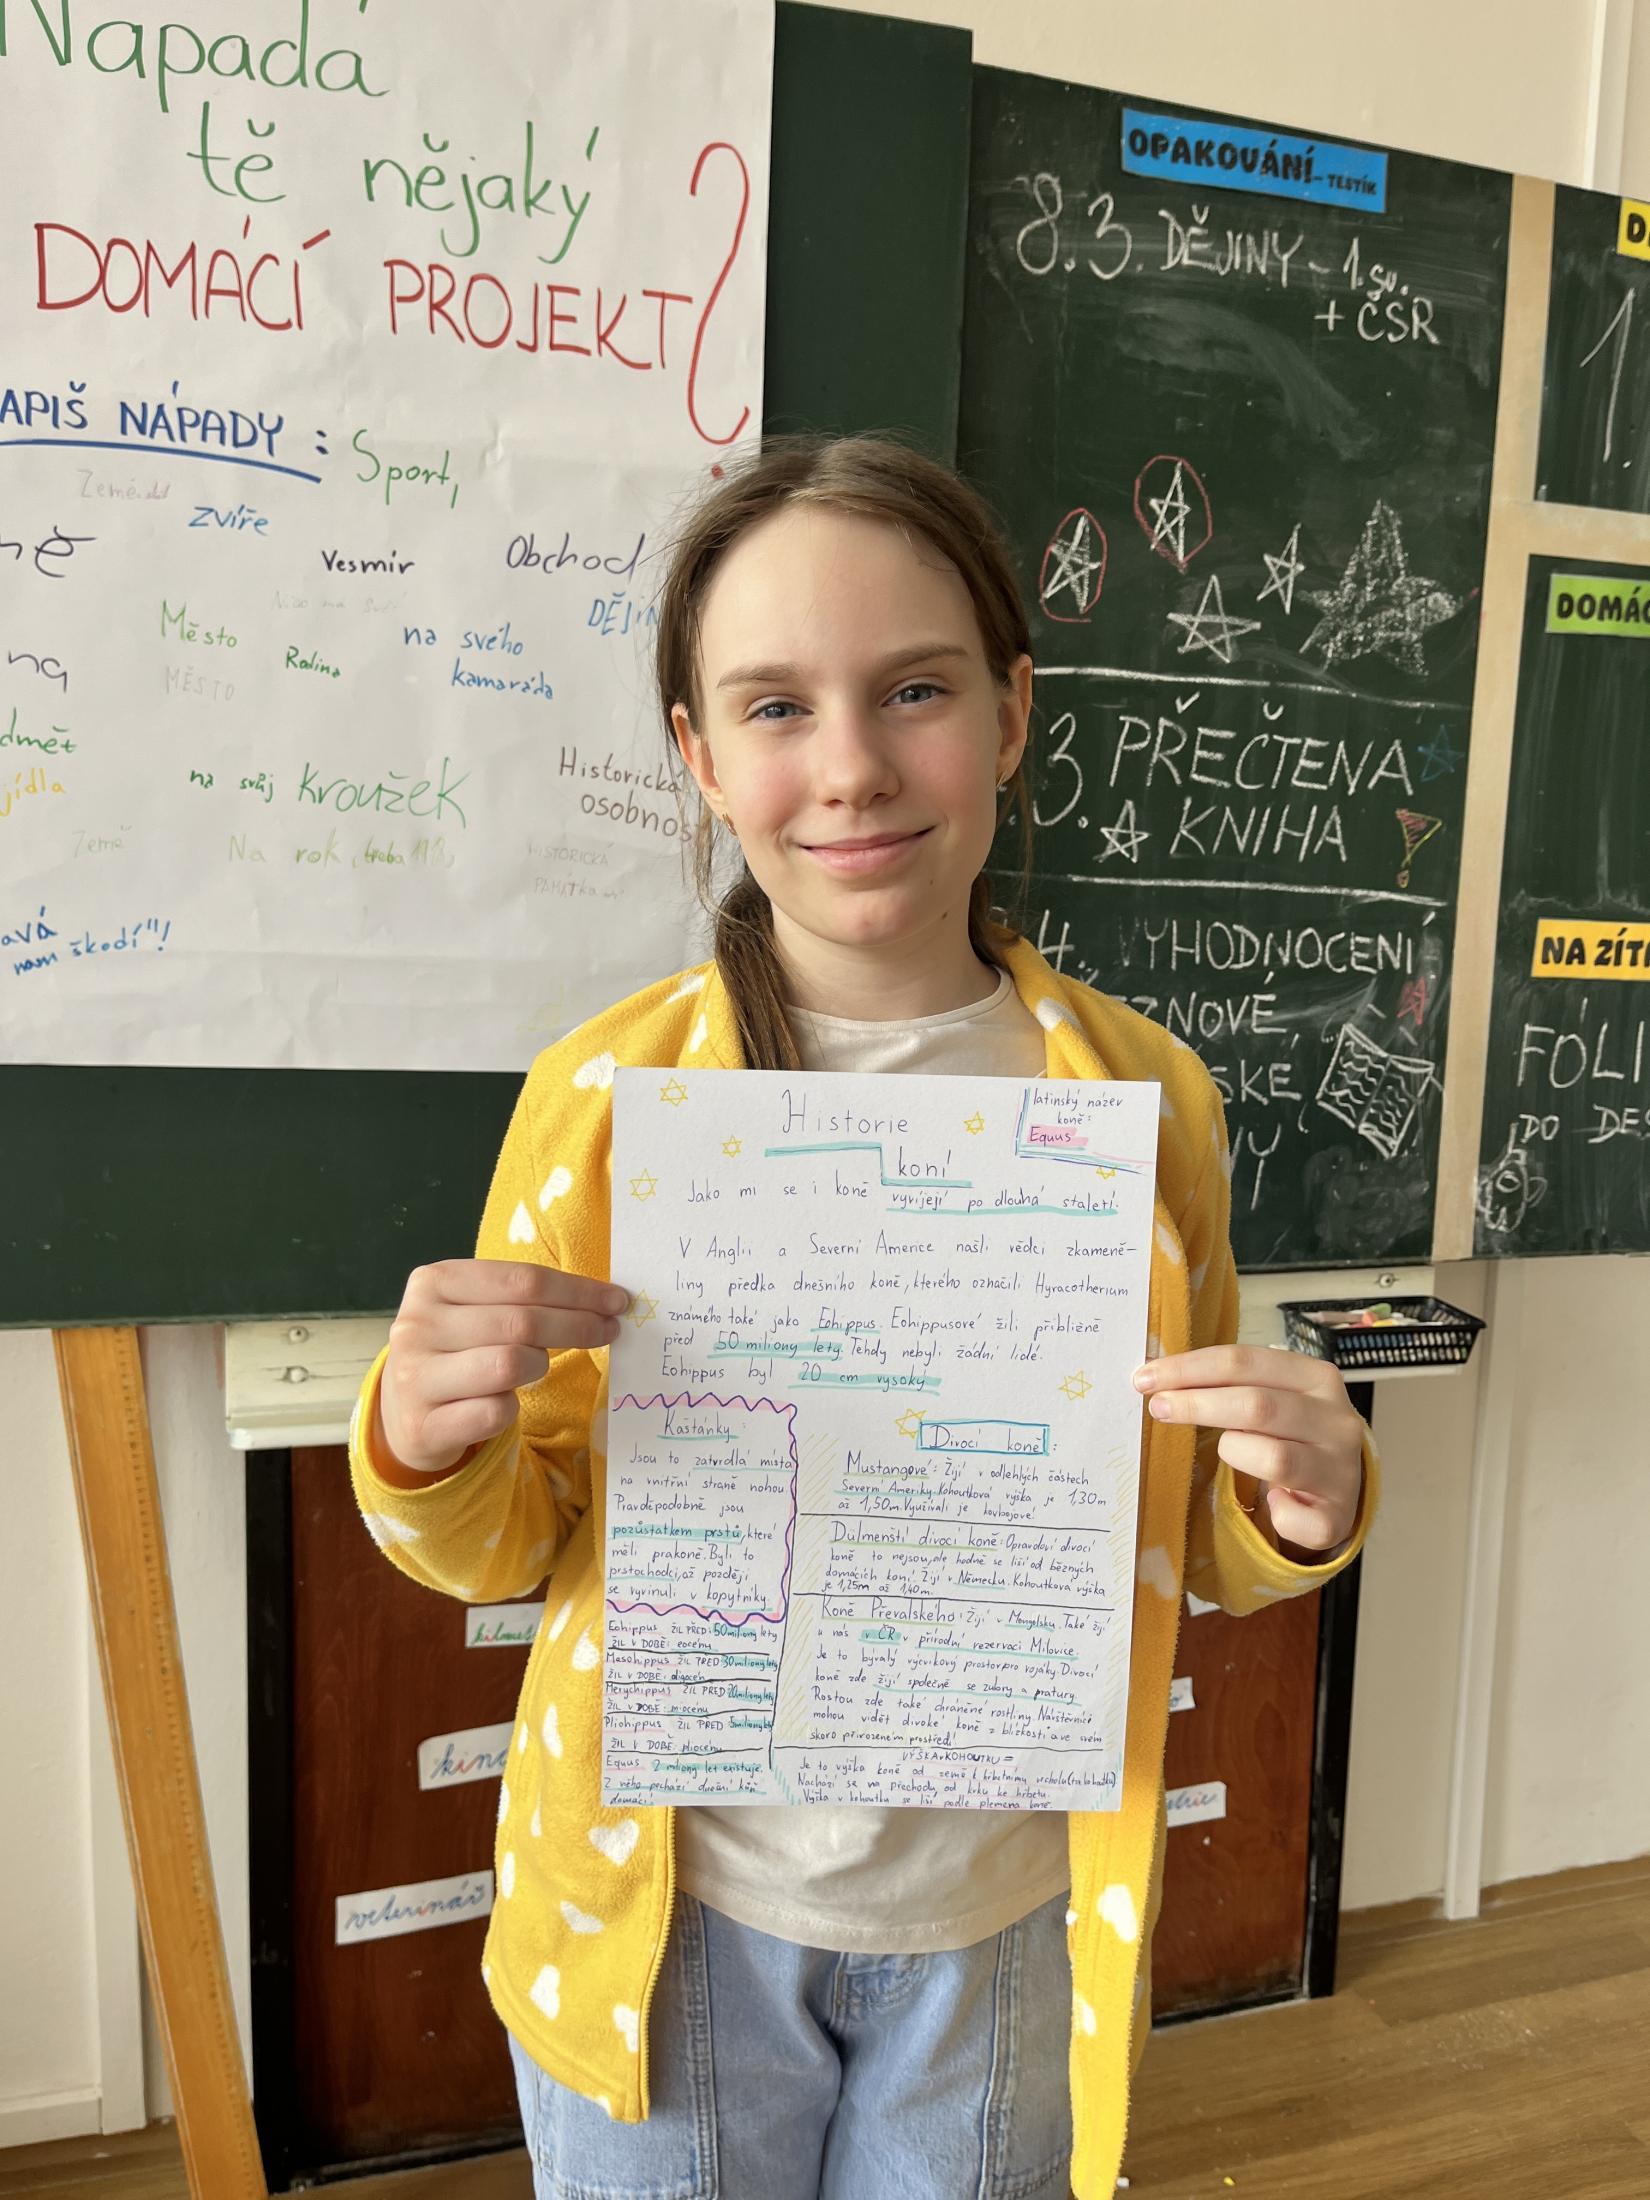 Napadá
tě nějaký
DOMÁCÍ PROJEKT?
APIŠ NÁPADY : Sport,
zvíře
Vesmír
Obchod
DĚJIN
Město
Rodina
na svého
kamaráda
MĚSTO
dmět
jídla
na svůj kroužek
Historická
osobnos
Země
Na rok (třeba
HISTORICKÁ
PAMÁTKA
avá
nám škodí"!
OPAKOVÁNÍ - TESTÍK
8.3. DĚJINY - 1.sv.
+ ČSR
3. PŘEČTENA
KNIHA
4. VYHODNOCENÍ
ZNOVÉ
SKÉ
Y
D
1.
DOMÁC
NA ZÍTŘ
FÓLI
DO DES
Historie
koní
latinský název
koně:
Equus
Jako mi se i koně vyvíjejí po dlouhá staletí.
V Anglii a Severní Americe našli vědci zkameně-
liny předka dnešního koně, kterého označili Hyracotherium
známého také jako Eohippus. Eohippusové žili přibližně
před 50 miliony lety. Tehdy nebyli žádní lidé.
Eohippus byl 20 cm vysoký
Kaštánky:
Jsou to zatvrdlá místa
na vnitřní straně nohou.
Pravděpodobně jsou
pozůstatkem prstů, které
měli prakoně. Byli to
prstochodci, až později
se vyvinuli v kopytníky.
Eohippus ŽIL PŘED: 50 miliony lety
ŽIL V DOBĚ: eocénu
Mesohippus ŽIL PŘED 30 miliony lety
ŽIL V DOBĚ: oligocén
Merychippus ŽIL PŘED 20 miliony lety
ŽIL V DOBĚ: miocénu
Pliohippus ŽIL PŘED 5 miliony lety
ŽIL V DOBĚ: pliocénu
Equus 2 miliony let existuje.
Z něho pochází dnešní kůň
domácí!
Divocí koně:
Mustangové: Žijí v odlehlých částech
Severní Ameriky. Kohoutková výška je 1,30m
až 1,50m. Využívali je kovbojové!
Dülmenští divocí koně: Opravdoví divocí
koně to nejsou, ale hodně se liší od běžných
domácích koní. Žijí v Německu. Kohoutková výška
je 1,25m až 1,40m.
Koně Převalského: Žijí v Mongolsku. Také žijí
u nás v ČR v přírodní rezervaci Milovice.
Je to bývalý výcvikový prostor pro vojáky. Divocí
koně zde žijí společně se zubry a pratury.
Rostou zde také chráněné rostliny. Návštěvníci
mohou vidět divoké koně z blízkosti a ve svém
skoro přirozeném prostředí!
VÝŠKA v KOHOUTKU =
Je to výška koně od země k hřbetnímu vrcholu (tz kohoutku)
Nachází se na přechodu od krku ke hřbetu.
Výška v kohoutku se liší podle plemena koně.
veterinář